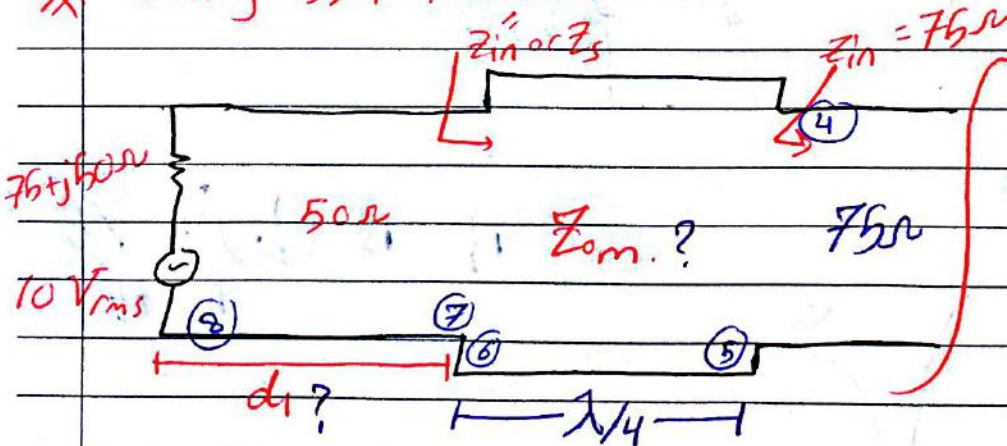 Z"in or Zs
Zin = 75Ω
④
75+j50Ω
50Ω
Zom. ?
75Ω
10 Vrms
⑧
⑦
⑥
⑤
d1 ?
λ/4